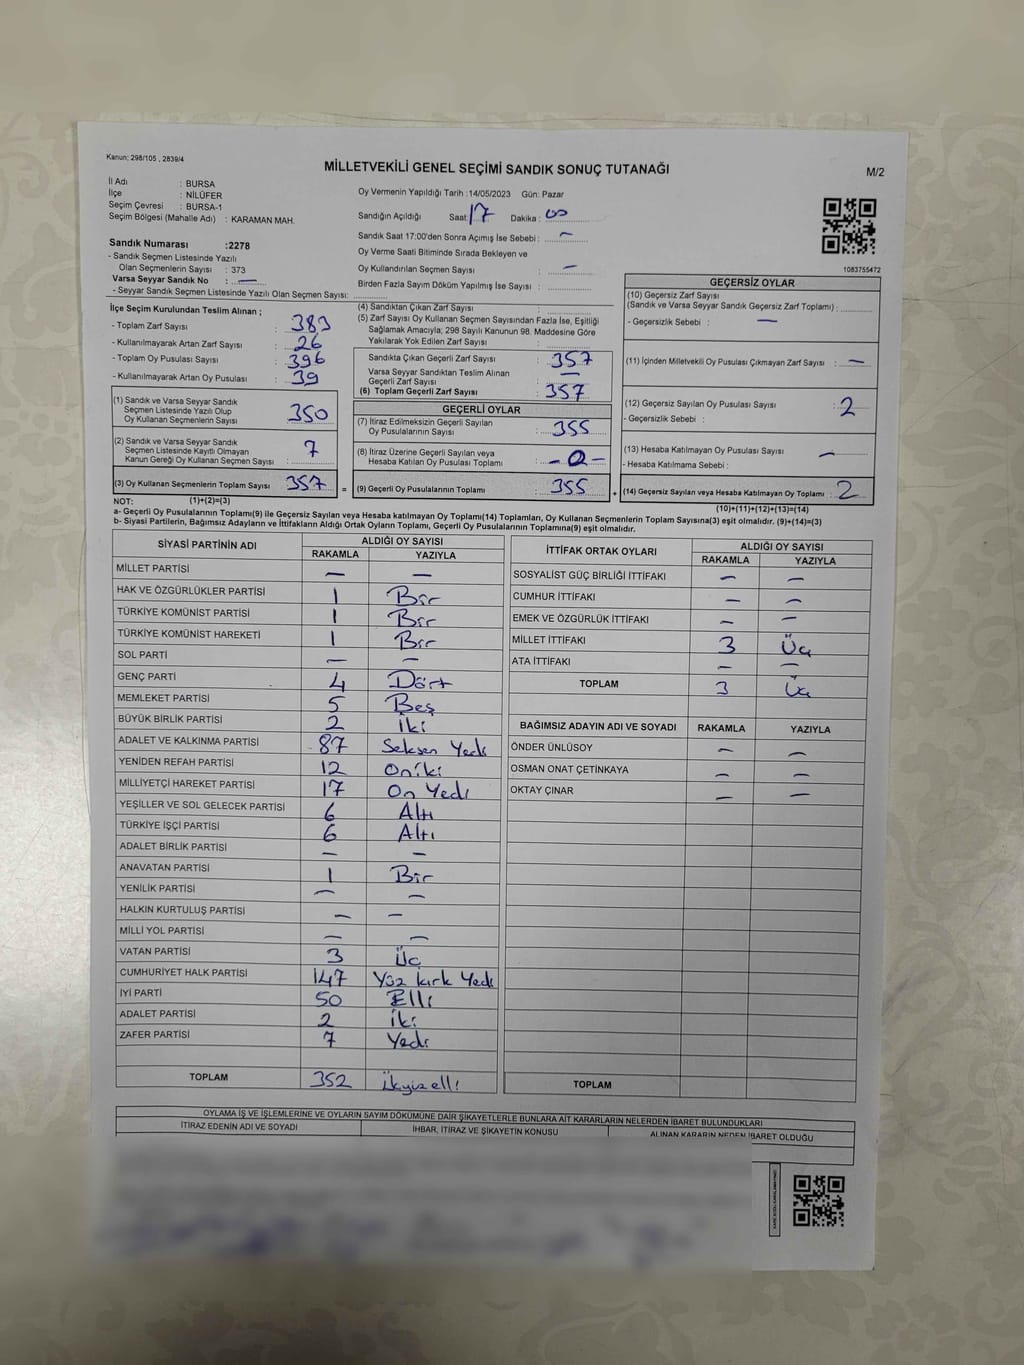 Kanun; 298/105 , 2839/4
MİLLETVEKİLİ GENEL SEÇİMİ SANDIK SONUÇ TUTANAĞI
M/2
İl Adı : BURSA
İlçe : NİLÜFER
Seçim Çevresi : BURSA-1
Seçim Bölgesi (Mahalle Adı) : KARAMAN MAH.
Sandık Numarası :2278
- Sandık Seçmen Listesinde Yazılı
Olan Seçmenlerin Sayısı : 373
Varsa Seyyar Sandık No : —
- Seyyar Sandık Seçmen Listesinde Yazılı Olan Seçmen Sayısı:
Oy Vermenin Yapıldığı Tarih :14/05/2023 Gün: Pazar
Sandığın Açıldığı Saat: 17 Dakika : 00
Sandık Saat 17:00'den Sonra Açımış İse Sebebi : —
Oy Verme Saati Bitiminde Sırada Bekleyen ve
Oy Kullandırılan Seçmen Sayısı : —
Birden Fazla Sayım Döküm Yapılmış İse Sayısı :
1083755472
İlçe Seçim Kurulundan Teslim Alınan ;
- Toplam Zarf Sayısı : 383
- Kullanılmayarak Artan Zarf Sayısı : 26
- Toplam Oy Pusulası Sayısı : 396
- Kullanılmayarak Artan Oy Pusulası : 39
(1) Sandık ve Varsa Seyyar Sandık
Seçmen Listesinde Yazılı Olup
Oy Kullanan Seçmenlerin Sayısı : 350
(2) Sandık ve Varsa Seyyar Sandık
Seçmen Listesinde Kayıtlı Olmayan
Kanun Gereği Oy Kullanan Seçmen Sayısı : 7
(3) Oy Kullanan Seçmenlerin Toplam Sayısı : 357 =
(4) Sandıktan Çıkan Zarf Sayısı :
(5) Zarf Sayısı Oy Kullanan Seçmen Sayısından Fazla İse, Eşitliği
Sağlamak Amacıyla; 298 Sayılı Kanunun 98. Maddesine Göre
Yakılarak Yok Edilen Zarf Sayısı :
Sandıkta Çıkan Geçerli Zarf Sayısı : 357
Varsa Seyyar Sandıktan Teslim Alınan
Geçerli Zarf Sayısı : —
(6) Toplam Geçerli Zarf Sayısı : 357
GEÇERLİ OYLAR
(7) İtiraz Edilmeksizin Geçerli Sayılan
Oy Pusulalarının Sayısı : 355
(8) İtiraz Üzerine Geçerli Sayılan veya
Hesaba Katılan Oy Pusulası Toplamı : -0-
(9) Geçerli Oy Pusulalarının Toplamı : 355 +
GEÇERSİZ OYLAR
(10) Geçersiz Zarf Sayısı
(Sandık ve Varsa Seyyar Sandık Geçersiz Zarf Toplamı) :
- Geçersizlik Sebebi : —
(11) İçinden Milletvekili Oy Pusulası Çıkmayan Zarf Sayısı : —
(12) Geçersiz Sayılan Oy Pusulası Sayısı : 2
- Geçersizlik Sebebi :
(13) Hesaba Katılmayan Oy Pusulası Sayısı : —
- Hesaba Katılmama Sebebi :
(14) Geçersiz Sayılan veya Hesaba Katılmayan Oy Toplamı : 2
NOT: (1)+(2)=(3)
(10)+(11)+(12)+(13)=(14)
a- Geçerli Oy Pusulalarının Toplamı(9) ile Geçersiz Sayılan veya Hesaba katılmayan Oy Toplamı(14) Toplamları, Oy Kullanan Seçmenlerin Toplam Sayısına(3) eşit olmalıdır. (9)+(14)=(3)
b- Siyasi Partilerin, Bağımsız Adayların ve İttifakların Aldığı Ortak Oyların Toplamı, Geçerli Oy Pusulalarının Toplamına(9) eşit olmalıdır.
SİYASİ PARTİNİN ADI ALDIĞI OY SAYISI
RAKAMLA YAZIYLA
MİLLET PARTİSİ — —
HAK VE ÖZGÜRLÜKLER PARTİSİ 1 Bir
TÜRKİYE KOMÜNİST PARTİSİ 1 Bir
TÜRKİYE KOMÜNİST HAREKETİ 1 Bir
SOL PARTİ — —
GENÇ PARTİ 4 Dört
MEMLEKET PARTİSİ 5 Beş
BÜYÜK BİRLİK PARTİSİ 2 İki
ADALET VE KALKINMA PARTİSİ 87 Seksen Yedi
YENİDEN REFAH PARTİSİ 12 Oniki
MİLLİYETÇİ HAREKET PARTİSİ 17 On Yedi
YEŞİLLER VE SOL GELECEK PARTİSİ 6 Altı
TÜRKİYE İŞÇİ PARTİSİ 6 Altı
ADALET BİRLİK PARTİSİ — —
ANAVATAN PARTİSİ 1 Bir
YENİLİK PARTİSİ — —
HALKIN KURTULUŞ PARTİSİ — —
MİLLİ YOL PARTİSİ — —
VATAN PARTİSİ 3 Üç
CUMHURİYET HALK PARTİSİ 147 Yüz kırk Yedi
İYİ PARTİ 50 Elli
ADALET PARTİSİ 2 İki
ZAFER PARTİSİ 7 Yedi
TOPLAM 352
İTTİFAK ORTAK OYLARI ALDIĞI OY SAYISI
RAKAMLA YAZIYLA
SOSYALİST GÜÇ BİRLİĞİ İTTİFAKI — —
CUMHUR İTTİFAKI — —
EMEK VE ÖZGÜRLÜK İTTİFAKI — —
MİLLET İTTİFAKI 3 Üç
ATA İTTİFAKI — —
TOPLAM 3 Üç
BAĞIMSIZ ADAYIN ADI VE SOYADI RAKAMLA YAZIYLA
ÖNDER ÜNLÜSOY — —
OSMAN ONAT ÇETİNKAYA — —
OKTAY ÇINAR — —
TOPLAM
OYLAMA İŞ VE İŞLEMLERİNE VE OYLARIN SAYIM DÖKÜMÜNE DAİR ŞİKAYETLERLE BUNLARA AİT KARARLARIN NELERDEN İBARET BULUNDUKLARI
İTİRAZ EDENİN ADI VE SOYADI İHBAR, İTİRAZ VE ŞİKAYETİN KONUSU ALINAN KARARIN NEDEN İBARET OLDUĞU